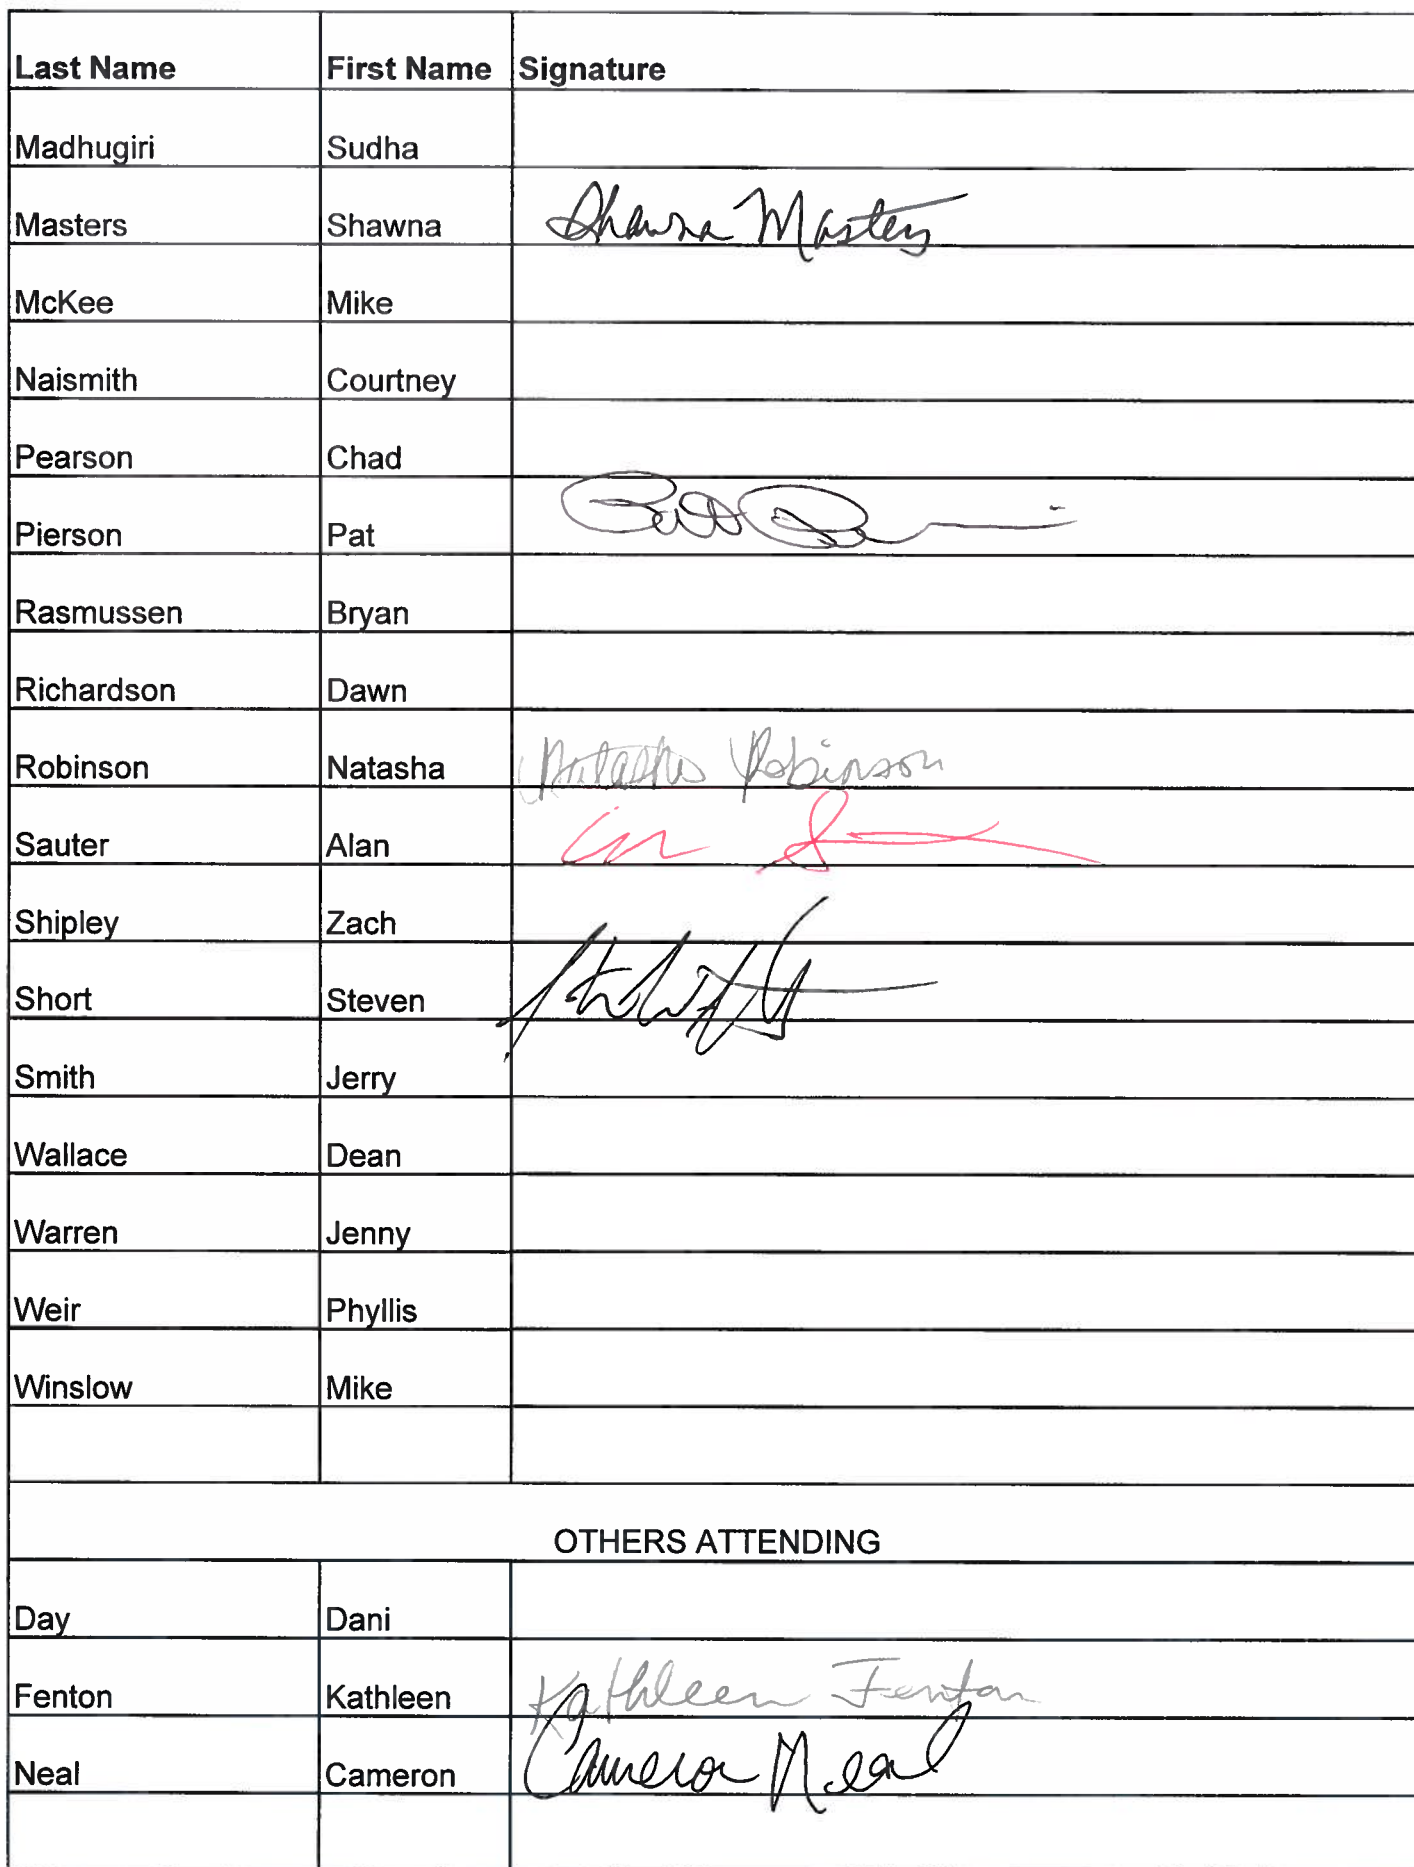 Last Name First Name Signature
Madhugiri Sudha
Masters Shawna Shawna Masters
McKee Mike
Naismith Courtney
Pearson Chad
Pierson Pat
Rasmussen Bryan
Richardson Dawn
Robinson Natasha Natasha Robinson
Sauter Alan
Shipley Zach
Short Steven
Smith Jerry
Wallace Dean
Warren Jenny
Weir Phyllis
Winslow Mike
OTHERS ATTENDING
Day Dani
Fenton Kathleen Kathleen Fenton
Neal Cameron Cameron Neal